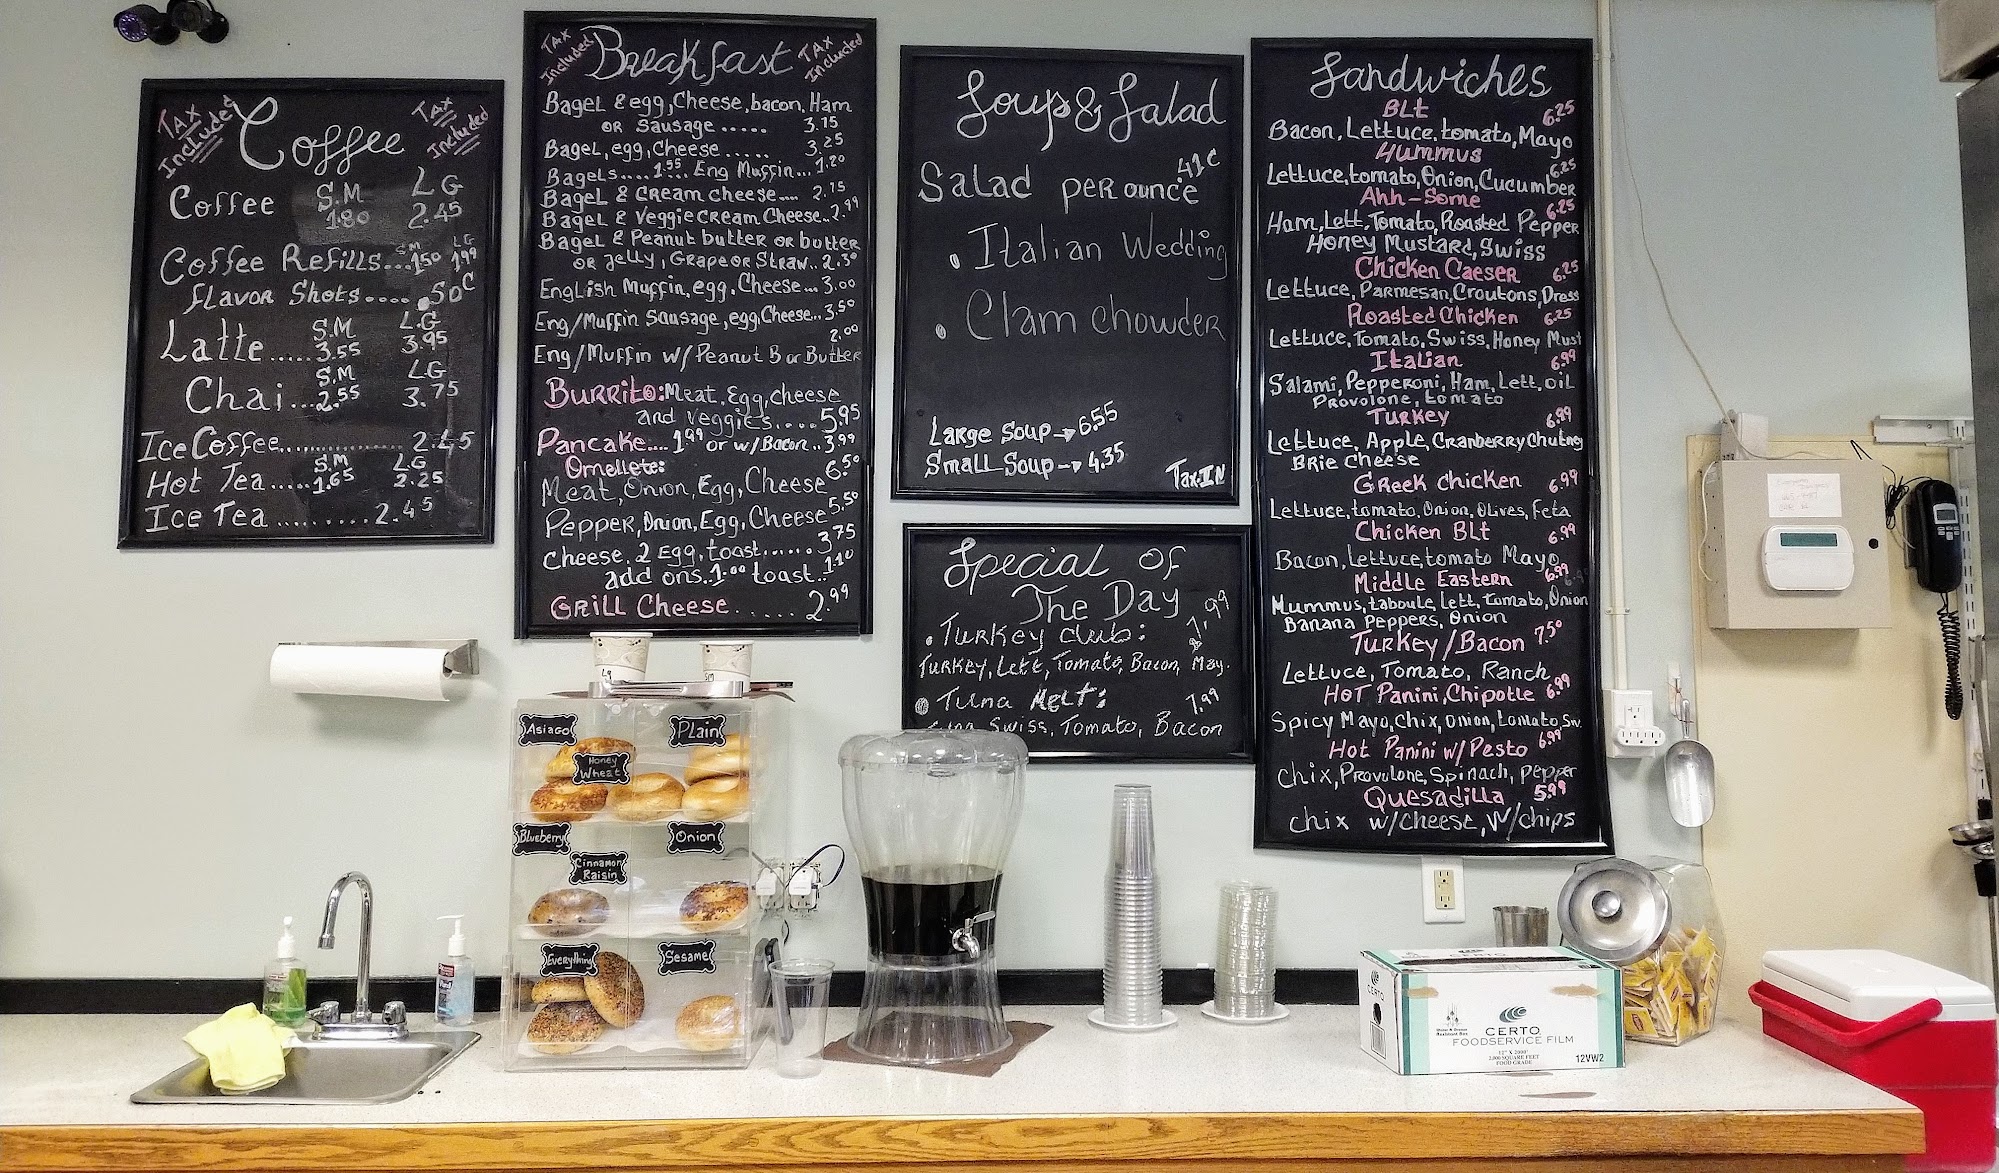 TAX Included
TAX Included
Coffee
Coffee S.M 1.80 LG 2.45
Coffee Refills... SM 1.50 LG 1.99
flavor Shots.... .50c
Latte..... S.M 3.55 L.G 3.95
Chai... S.M 2.55 LG 3.75
Ice Coffee............ 2.45
Hot Tea..... S.M 1.65 LG 2.25
Ice Tea ......... 2.45
TAX Included
TAX Included
Breakfast
Bagel & egg, Cheese, bacon, Ham
or Sausage ..... 3.75
Bagel, egg, Cheese ..... 3.25
Bagels.... 1.55 ... Eng Muffin... 1.20
Bagel & Cream cheese.... 2.75
Bagel & Veggie Cream Cheese.. 2.99
Bagel & Peanut butter or butter
or jelly, Grape or Straw.. 2.30
English Muffin, egg, Cheese... 3.00
Eng/Muffin Sausage, egg, Cheese.. 3.50
2.00
Eng/Muffin w/ Peanut B or Butter
Burrito: Meat, Egg, cheese
and veggies.... 5.95
Pancake.... 1.99 or w/Bacon.. 3.99
Omellete:
Meat, Onion, Egg, Cheese 6.50
Pepper, Onion, Egg, Cheese 5.50
Cheese, 2 Egg, toast...... 3.75
add ons.. 1.00 toast.. 1.10
Grill Cheese ..... 2.99
Soup & Salad
Salad per ounce 41c
• Italian Wedding
• Clam Chowder
Large Soup → 6.55
Small Soup → 4.35
Tax-IN
Special Of
The Day
• Turkey club: 7.99
Turkey, Lett, Tomato, Bacon, May.
• Tuna Melt: 7.99
Swiss, Tomato, Bacon
Sandwiches
BLt 6.25
Bacon, Lettuce, tomato, Mayo
Hummus 6.25
Lettuce, tomato, Onion, Cucumber
Ahh-Some 6.25
Ham, Lett, Tomato, Roasted Pepper
Honey Mustard, Swiss
Chicken Caeser 6.25
Lettuce, Parmesan, Croutons, Dress
Roasted Chicken 6.25
Lettuce, Tomato, Swiss, Honey Must
Italian 6.99
Salami, Pepperoni, Ham, Lett, oil
Provolone, tomato
Turkey 6.99
Lettuce, Apple, Cranberry Chutng
Brie Cheese
Greek Chicken 6.99
Lettuce, tomato, Onion, Olives, Feta
Chicken Blt 6.99
Bacon, Lettuce, tomato Mayo
Middle Eastern 6.99
Mummus, taboule, Lett, tomato, Onion
Banana Peppers, Onion
Turkey/Bacon 7.50
Lettuce, Tomato, Ranch
Hot Panini, Chipotle 6.99
Spicy Mayo, Chix, Onion, tomato, Sw.
Hot Panini w/ Pesto 6.99
Chix, Provolone, Spinach, pepper
Quesadilla 5.99
Chix w/ Cheese, w/ chips
Lg
SM
Asiago
Plain
Honey
Wheat
Blueberry
Onion
Cinnamon
Raisin
Everything
Sesame
CERTO
CERTO
FOODSERVICE FILM
12" X 2000'
2,000 SQUARE FEET
FOOD GRADE
12VW2